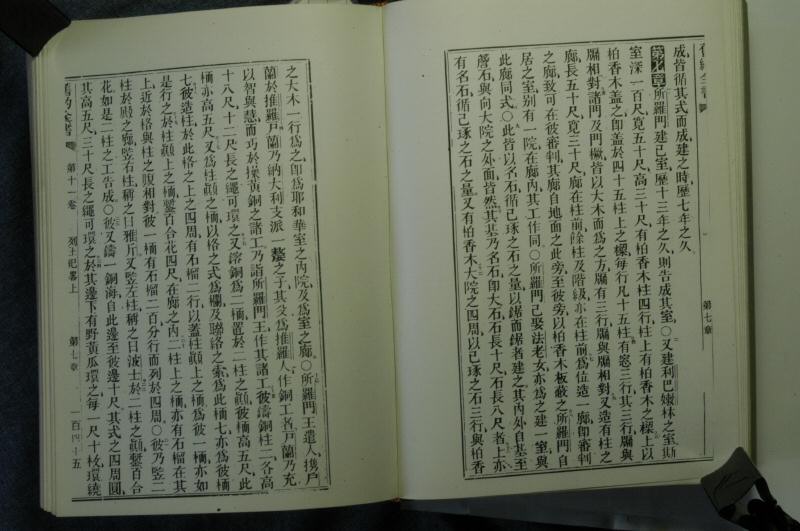 舊約全書
第七章
成皆循其式而成建之時歷七年之久
第七章所羅門建己室歷十三年之久則告成其室○又建利巴嫩林之室斯
室深一百尺寬五十尺高三十尺有柏香木柱四行柱上有柏香木之樑上以
柏香木蓋之卽蓋於四十五柱上之樑每行凡十五柱有窓三行其三行牖與
牖相對諸門及門橛皆以大木而爲之方牖有三行牖與牖相對又造有柱之
廊長五十尺寬三十尺廊在柱前餘柱及階級亦在柱前爲位造一廊卽審判
之廊致可在彼審判其廊自地面之此旁至彼旁以柏香木板敝之所羅門自
居之室别有一院在廊內其工作同○所羅門己娶法老女亦爲之建一室與
此廊同式○此皆以名石循己琢之石之量以鋸而鋸者建之其內外自基至
簷石與向大院之外面皆然其基乃名石卽大石石長十尺石長八尺者上亦
有名石循己琢之石之量又有柏香木大院之四周以己琢之石三行與柏香
之大木一行爲之卽爲耶和華室之內院及爲室之廊○所羅門王遣人攜戶
蘭於推羅戶蘭乃納大利支派一嫠之子其父爲推羅人作銅工者戶蘭乃充
以智與慧而巧於操黃銅之諸工乃詣所羅門王作其諸工彼鑄銅柱二各高
十八尺十二尺長之繩可環之又鎔銅爲二桶置於二柱之顚彼桶高五尺此
桶亦高五尺又爲柱顚之桶以格之式爲欄及聯絡之索爲此桶七亦爲彼桶
七彼造柱於此格之上之四周有石榴二行以蓋柱顚上之桶爲彼一桶亦如
是行之於柱顚上之桶鏨百合花四尺在廊之內二柱上之桶亦有石榴在其
上近於格與柱之腹相對彼一桶有石榴二百分行而列於四周○彼乃竪二
柱於殿之廊竪右柱稱之曰雅斤又竪左柱稱之曰波士於二柱之顚鏨百合
花如是柱之工告成○彼又鑄一銅海自此邊至彼邊十尺其式之四周圓
其高五尺三十尺長之繩可環之於其邊下有野黃瓜環之每一尺十枚環繞
舊約全書
第十一卷
列王紀畧上
第七章
一百四十五